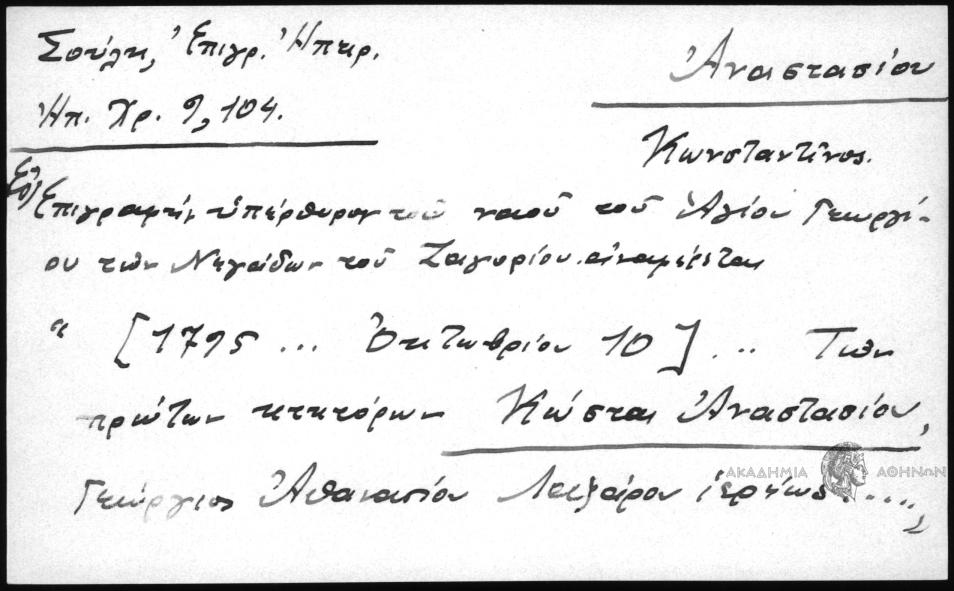 Σούλη, Ἐπιγρ. Ἠπειρ.
Ἠπ. Χρ. 9, 104.
Ἀναστασίου
Κωνσταντῖνος.
Ἐπιγραφὴ ὑπέρθυρον τοῦ ναοῦ τοῦ Ἁγίου Γεωργί-
ου τῶν Νεγάδων τοῦ Ζαγορίου ἀναφέρεται
“ [1795 ... Ὀκτωβρίου 10] ... Τῶν
πρώτων κτητόρων Κώστα Ἀναστασίου,
Γεώργιος Ἀθανασίου ἱερέως .....,
ΑΚΑΔΗΜΙΑ ΑΘΗΝΩΝ